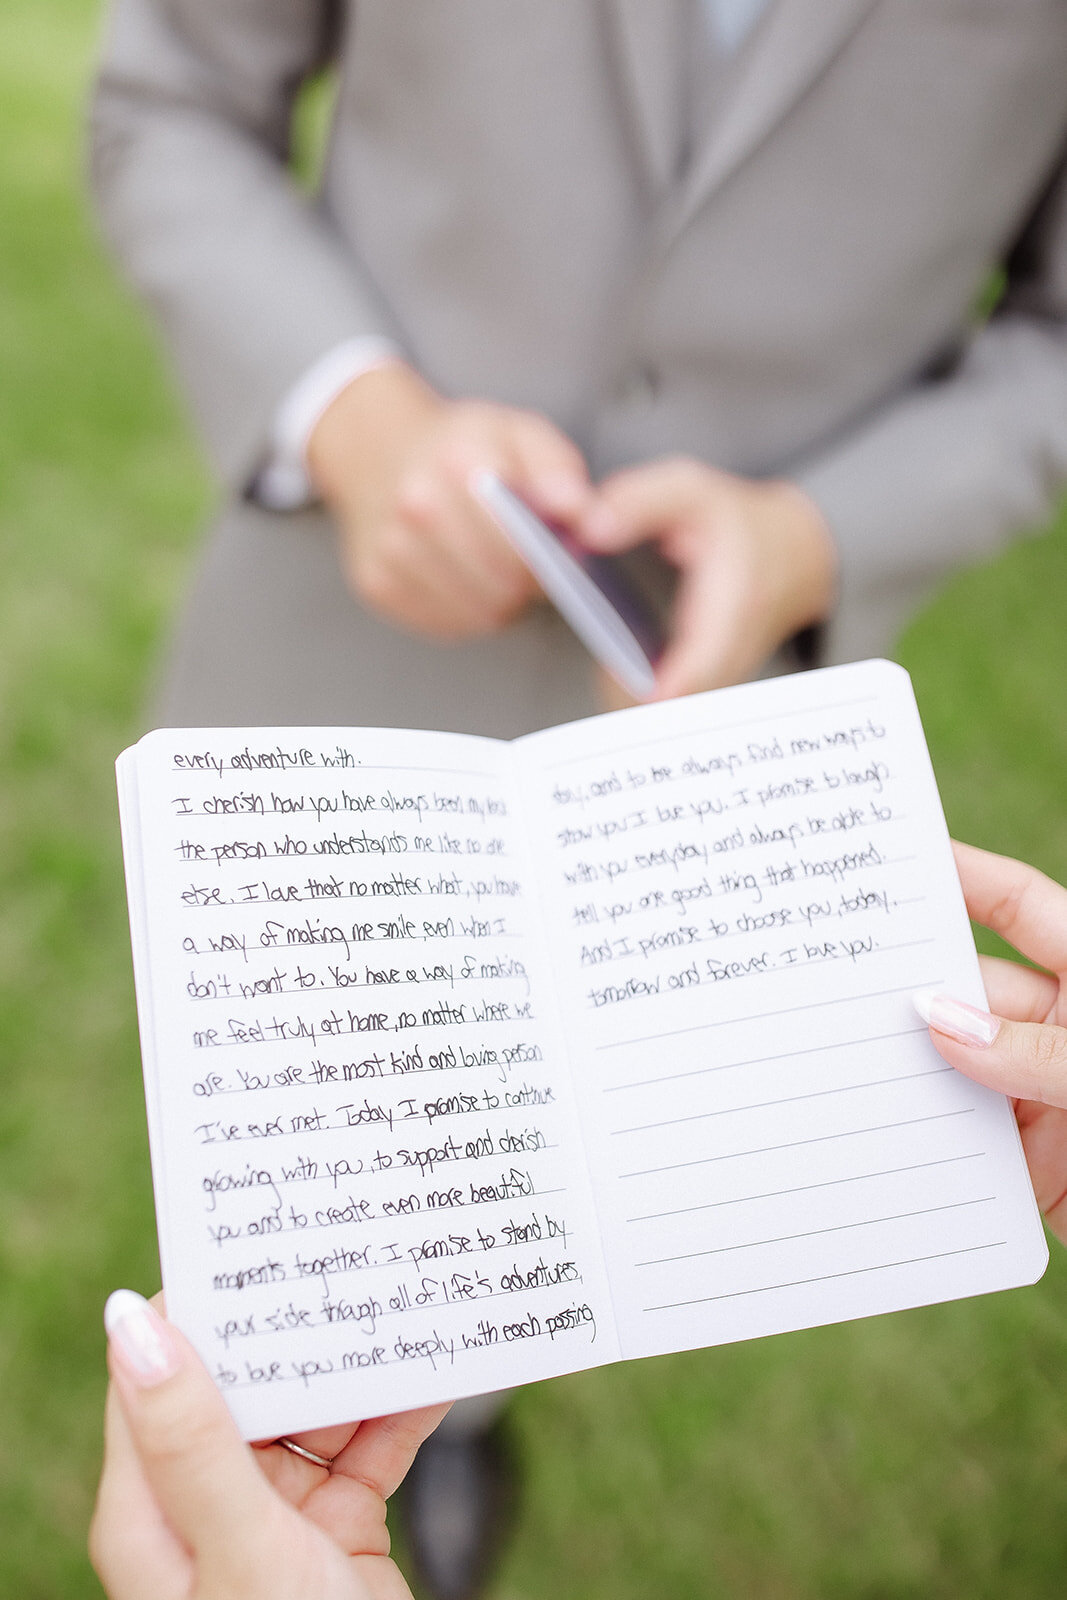 every adventure with.
I cherish how you have always been my
the person who understands me like no one
else. I love that no matter what, you have
a way of making me smile, even when I
don't want to. You have a way of making
me feel truly at home, no matter where we
are. You are the most kind and loving person
I've ever met. Today I promise to continue
growing with you, to support and cherish
you and to create even more beautiful
moments together. I promise to stand by
your side through all of life's adventures,
to love you more deeply with each passing
day, and to be always find new ways to
show you I love you. I promise to laugh
with you everyday and always be able to
tell you one good thing that happened.
And I promise to choose you, today,
tomorrow and forever. I love you.